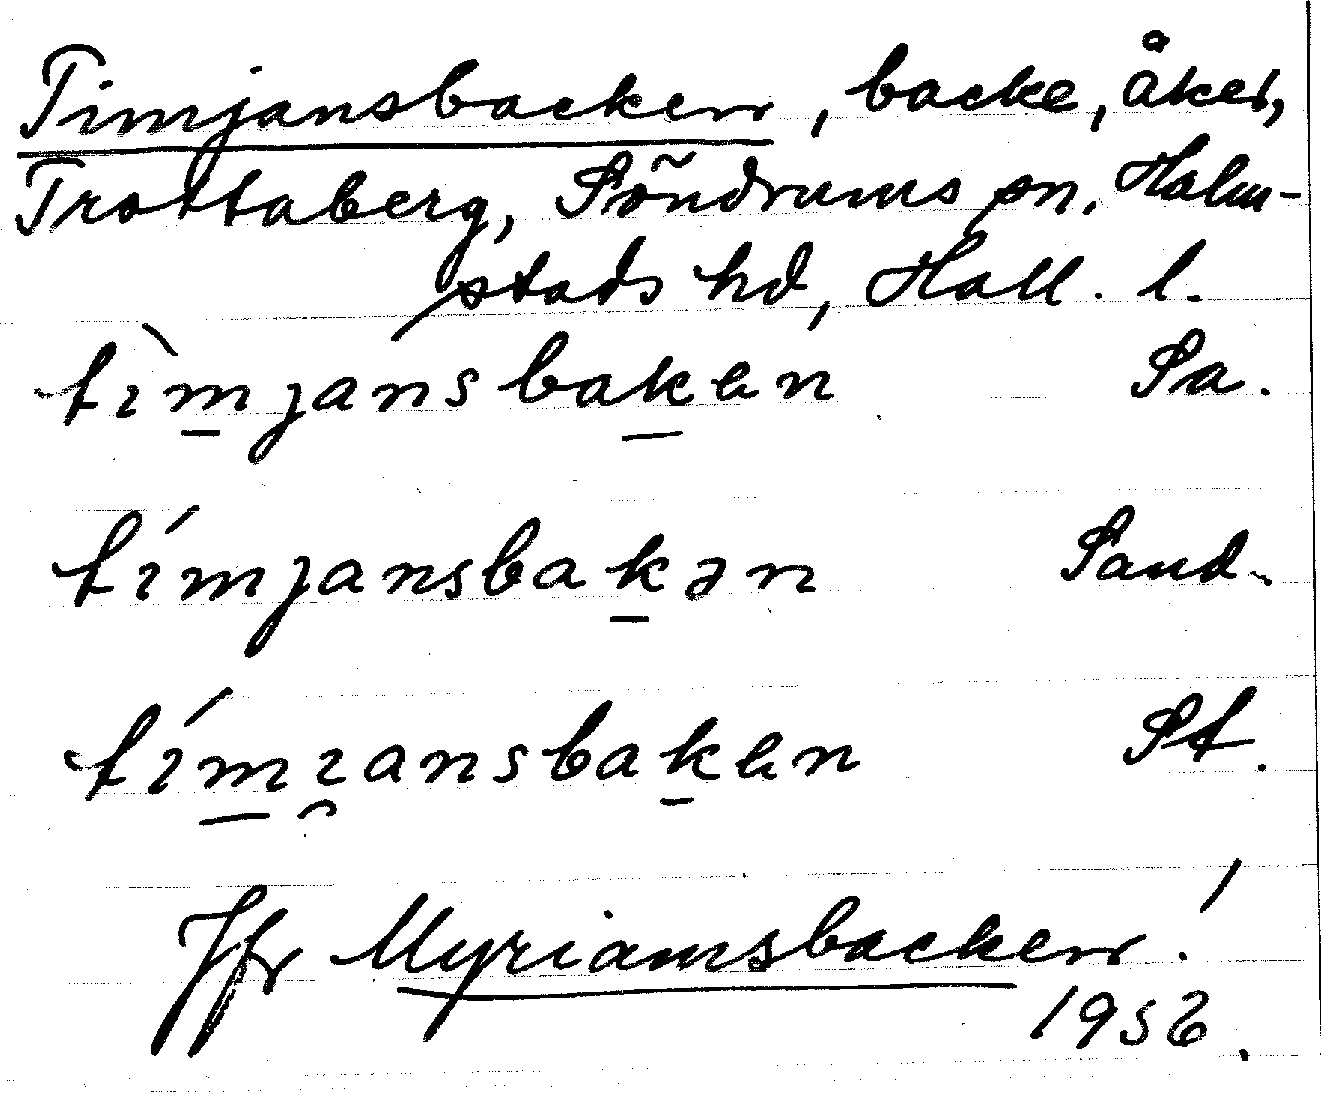 Timjansbacken, backe, åker,
Trottaberg, Söndrums sn. Halm-
stads hd, Hall. l.
tìmjansbakən Sa.
tímjansbakən Sand.
tími̯ansbakən St.
Jfr Myriamsbacken!
1952.